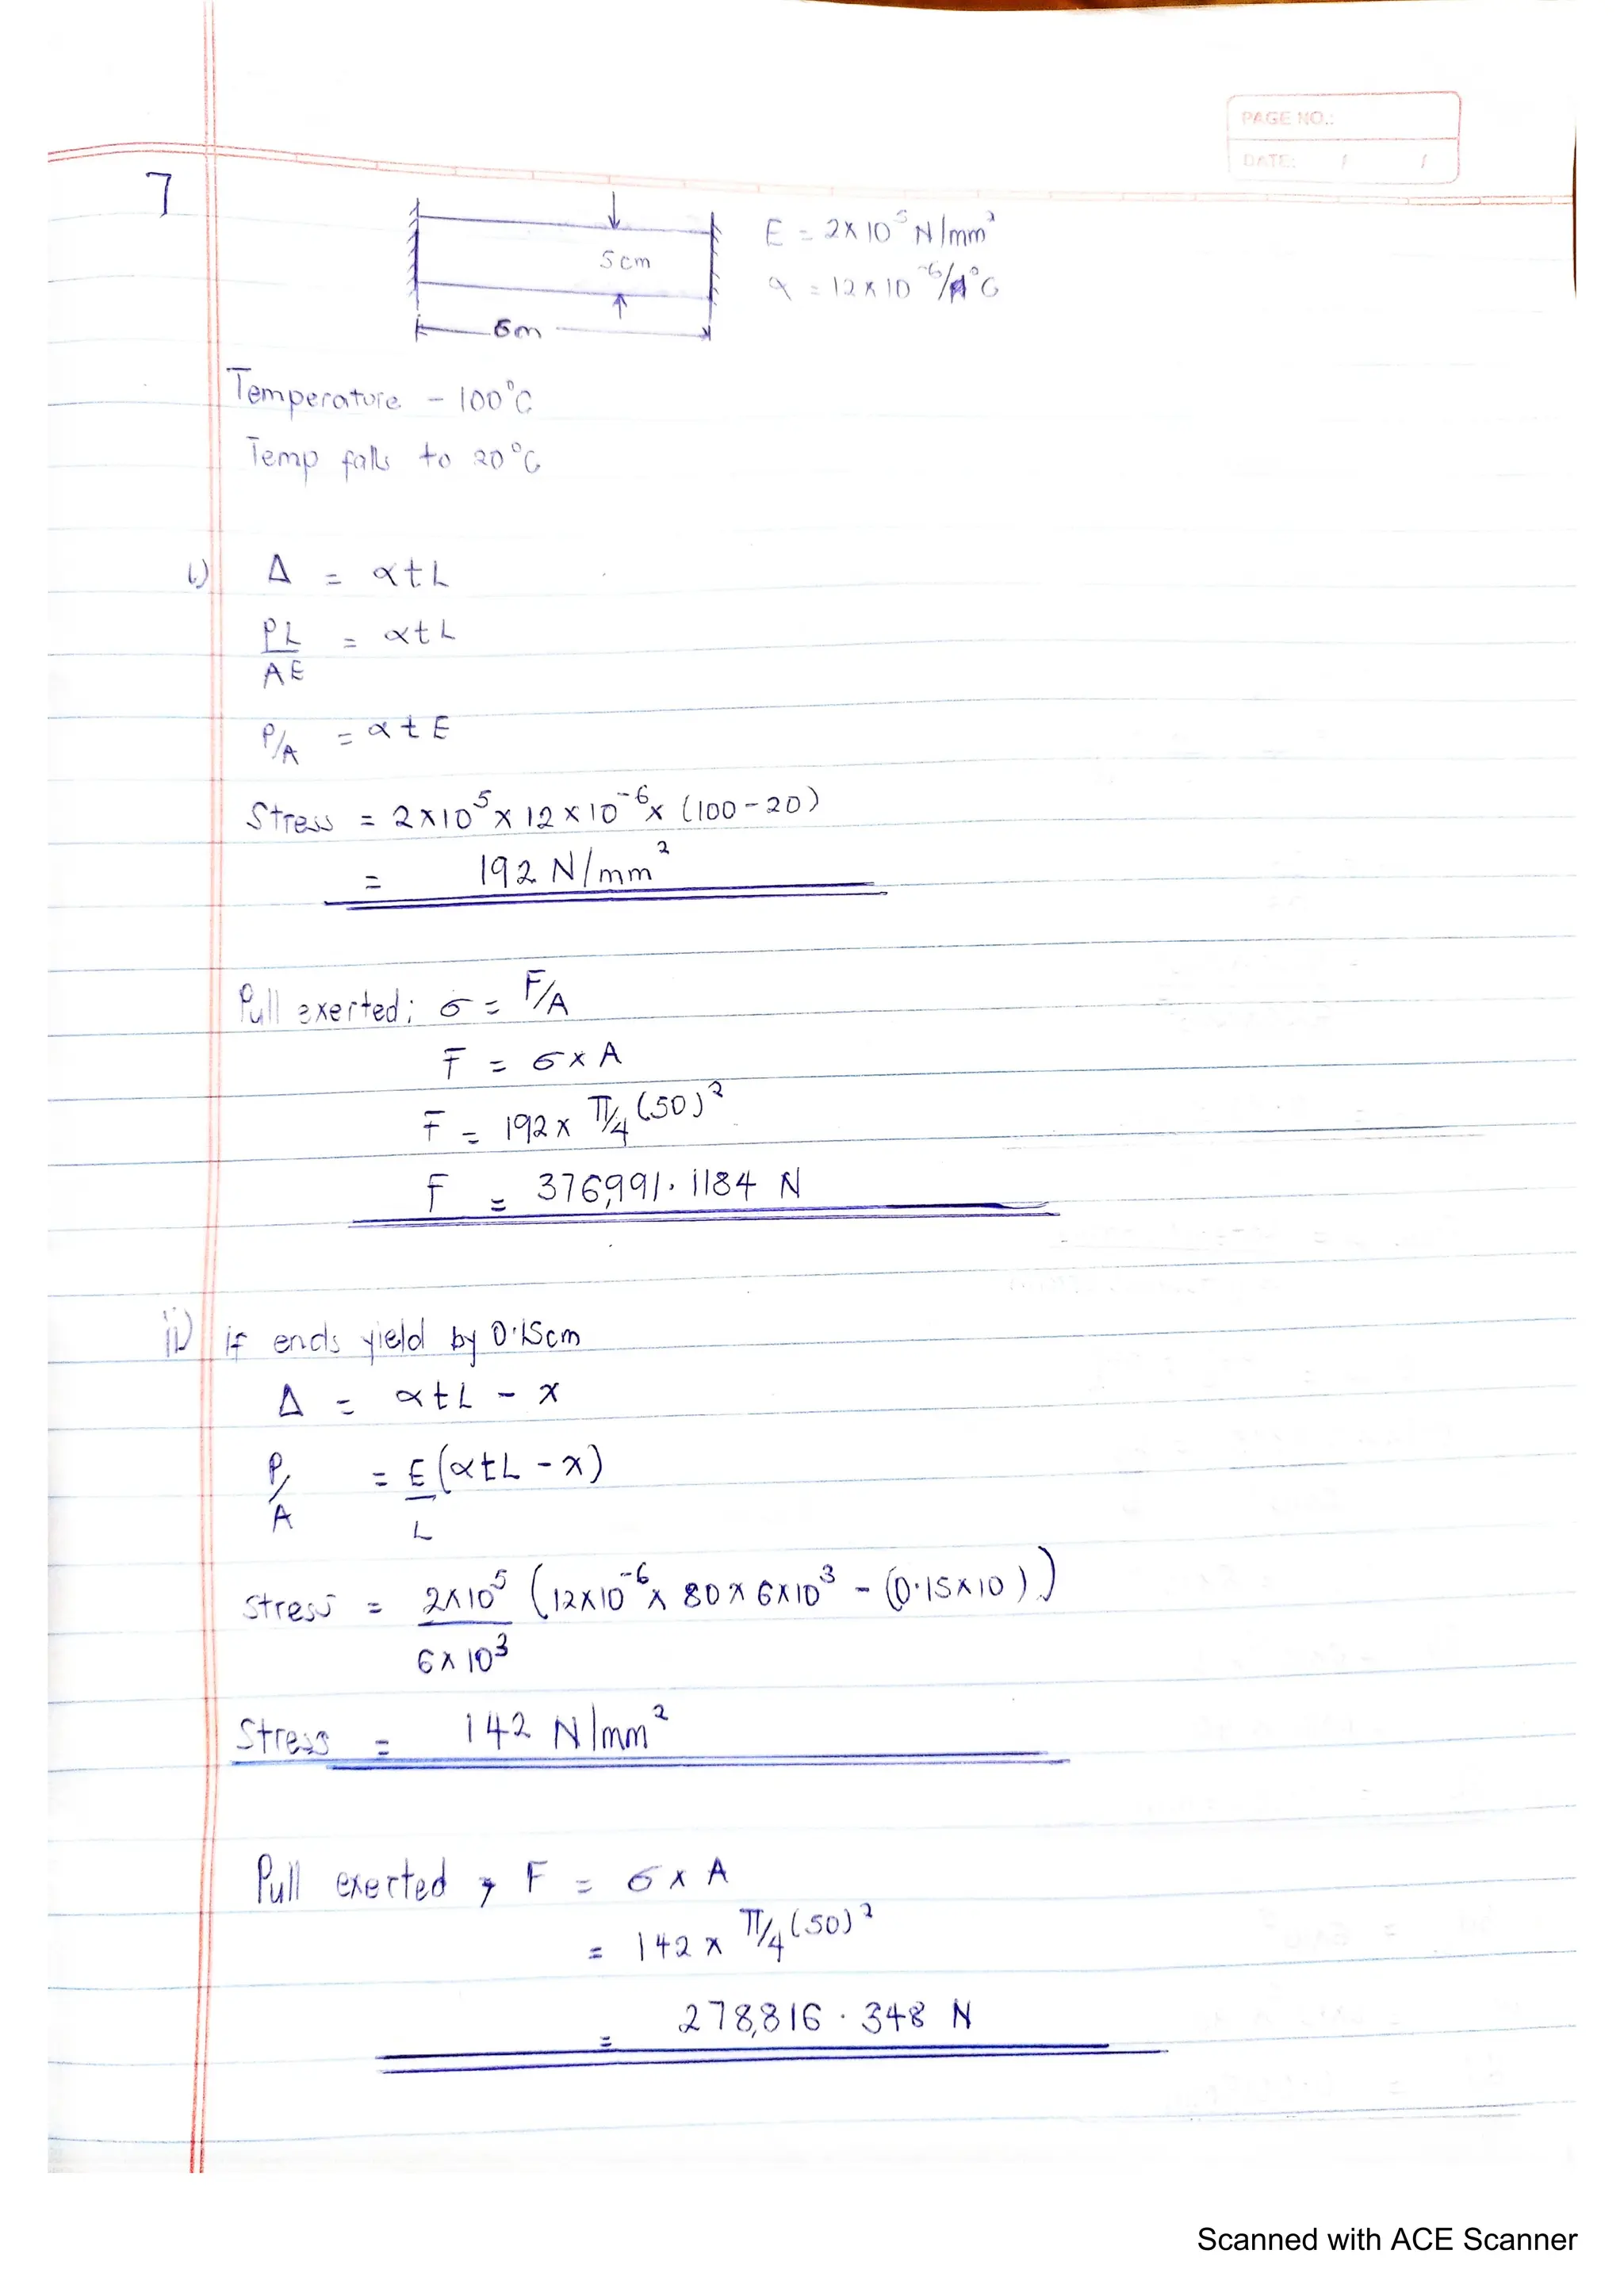 PAGE NO.:
DATE: / /
7
5cm
6m
E = 2×10⁵ N/mm²
α = 12×10⁻⁶/1°C
Temperature - 100°C
Temp falls to 20°C
i) Δ = αtL
PL/AE = αtL
P/A = αtE
Stress = 2×10⁵ × 12×10⁻⁶ × (100-20)
= 192 N/mm²
Pull exerted; σ = F/A
F = σ×A
F = 192 × π/4 (50)²
F = 376,991.1184 N
ii) if ends yield by 0.15cm
Δ = αtL - x
P/A = E/L (αtL - x)
Stress = 2×10⁵/6×10³ (12×10⁻⁶ × 80 × 6×10³ - (0.15×10))
Stress = 142 N/mm²
Pull exerted, F = σ × A
= 142 × π/4 (50)²
= 278,816.348 N
Scanned with ACE Scanner